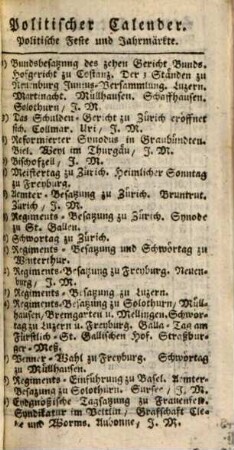 Politischer Calender.
Politische Feste und Jahrmärkte.
) Bundsbesatzung des zehen Gericht Bunds.
Hofgericht zu Costanz. Der 3 Ständen zu
Neuenburg Junius-Versammlung. Luzern.
Martinach. Müllhausen. Schaffhausen.
Solothurn, J. M.
) Das Schulden-Gericht zu Zürich eröffnet
sich. Collmar. Uri, J. M.
) Reformierter Synodus in Graubündten.
Biel. Weyl im Thurgäu, J. M.
) Bischofzell, J. M.
) Meistertag zu Zürich. Heimlicher Sonntag
zu Freyburg.
) Aemter-Besatzung zu Zürich. Bruntrut.
Zürich, J. M.
) Regiments-Besatzung zu Zürich. Synode
zu St. Gallen.
) Schwörtag zu Zürich.
) Regiments-Besatzung und Schwörtag zu
Winterthur.
) Regiments-Besatzung zu Freyburg. Neuen-
burg, J. M.
) Regiments-Besatzung zu Luzern.
) Regiments-Besatzung zu Solothurn, Müll-
hausen, Bremgarten u. Mellingen. Schwör-
tag zu Luzern u. Freyburg. Galla-Tag am
Fürstlich-St. Gallischen Hof. Straßbur-
ger-Meß.
) Venner-Wahl zu Freyburg. Schwörtag
zu Müllhausen.
) Regiments-Einführung zu Basel. Aemter-
Besatzung zu Solothurn. Sursee, J. M.
) Eydsgenössische Tagsatzung zu Frauenfeld.
Syndikatur im Veltlin, Grafschaft Cle-
ve und Worms. Aubonne, J. M.